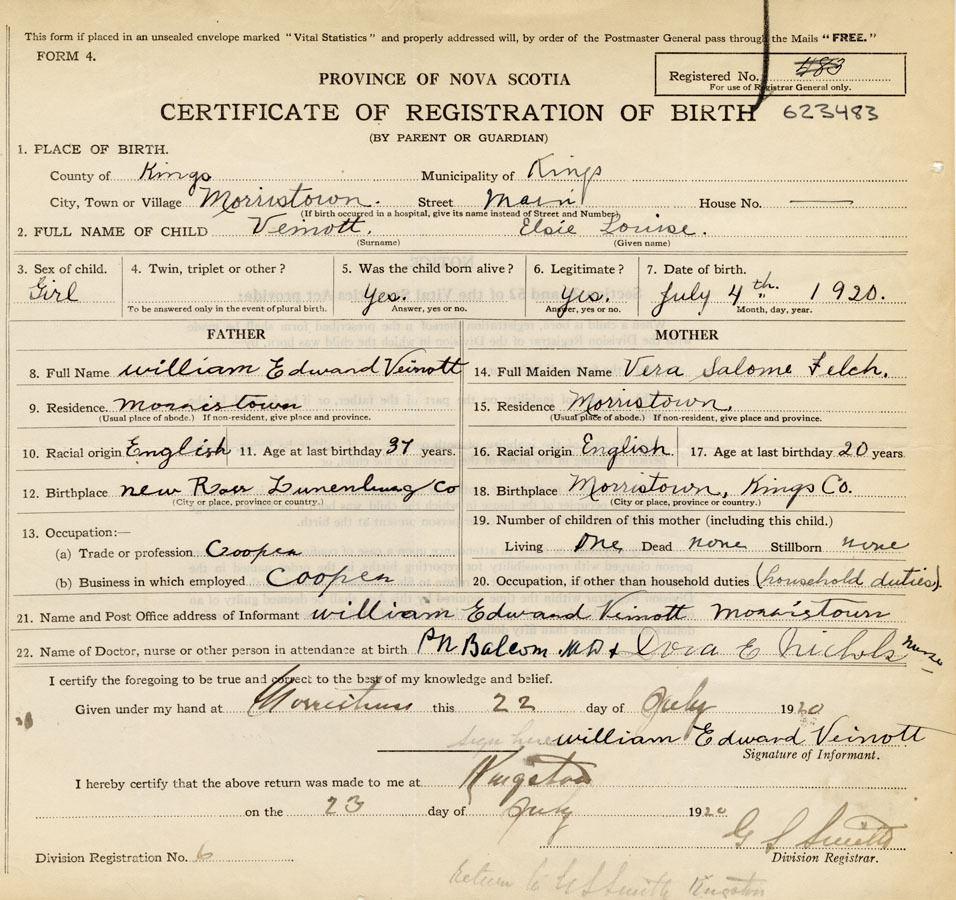 This form if placed in an unsealed envelope marked "Vital Statistics" and properly addressed will, by order of the Postmaster General pass through the Mails "FREE."
FORM 4.
PROVINCE OF NOVA SCOTIA
Registered No. 483
For use of Registrar General only.
CERTIFICATE OF REGISTRATION OF BIRTH 623483
(BY PARENT OR GUARDIAN)
1. PLACE OF BIRTH.
County of Kings Municipality of Kings
City, Town or Village Morristown. Street Main House No. —
(If birth occurred in a hospital, give its name instead of Street and Number)
2. FULL NAME OF CHILD Veinott. Elsie Louise.
(Surname) (Given name)
3. Sex of child. 4. Twin, triplet or other? 5. Was the child born alive? 6. Legitimate? 7. Date of birth.
Girl Yes. Yes. July 4th. 1920.
To be answered only in the event of plural birth. Answer, yes or no. Answer, yes or no. Month, day, year.
FATHER MOTHER
8. Full Name william Edward Veinott 14. Full Maiden Name Vera Salome Felch.
9. Residence. Morristown 15. Residence Morristown.
(Usual place of abode.) If non-resident, give place and province. (Usual place of abode.) If non-resident, give place and province.
10. Racial origin English 11. Age at last birthday 37 years. 16. Racial origin English. 17. Age at last birthday 20 years
12. Birthplace new Ross Lunenburg Co 18. Birthplace Morristown, Kings Co.
(City or place, province or country.) (City or place, province or country.)
13. Occupation:— 19. Number of children of this mother (including this child.)
(a) Trade or profession Cooper Living One Dead none Stillborn none
(b) Business in which employed Cooper 20. Occupation, if other than household duties (household duties).
21. Name and Post Office address of Informant william Edward Veinott morristown
22. Name of Doctor, nurse or other person in attendance at birth P N Balcom. M D & Dora E Nichols nurse
I certify the foregoing to be true and correct to the best of my knowledge and belief.
Given under my hand at Morristown this 22 day of July 1920
sign here william Edward Veinott
Signature of Informant.
I hereby certify that the above return was made to me at Kingston
on the 23 day of July 1920
G S Smith
Division Registration No. 6 Division Registrar.
Return to G S Smith Kingston